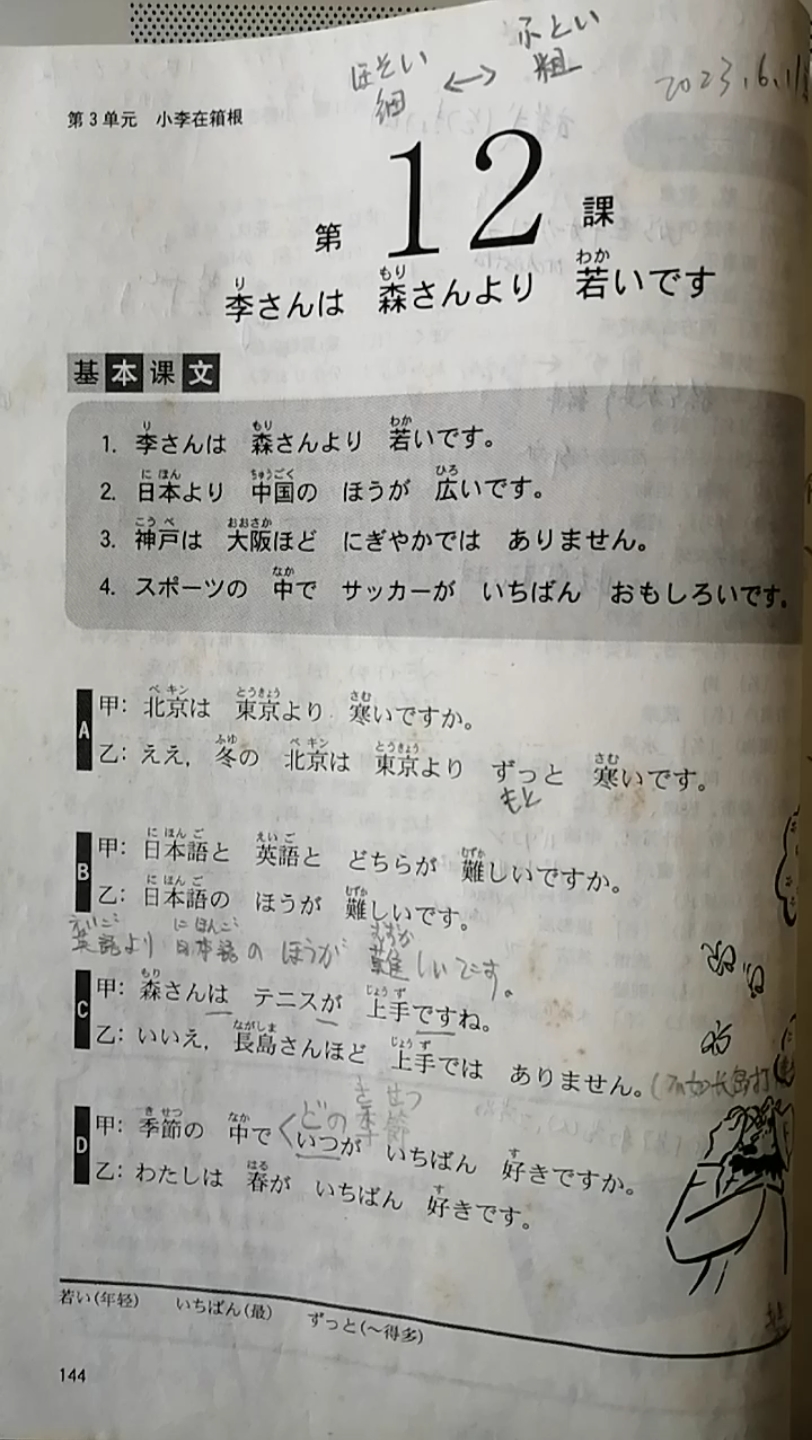 ほそい ←→ ふとい
細 粗
2023.6.1
第3单元 小李在箱根
第12課
李さんは 森さんより 若いです
基本课文
1. 李さんは 森さんより 若いです。
2. 日本より 中国の ほうが 広いです。
3. 神戸は 大阪ほど にぎやかでは ありません。
4. スポーツの 中で サッカーが いちばん おもしろいです。
A 甲: 北京は 東京より 寒いですか。
乙: ええ, 冬の 北京は 東京より ずっと 寒いです。
もと
B 甲: 日本語と 英語と どちらが 難しいですか。
乙: 日本語の ほうが 難しいです。
英語より 日本語の ほうが 難しいです。
C 甲: 森さんは テニスが 上手ですね。
乙: いいえ, 長島さんほど 上手では ありません。(不如长岛打
どの季節
D 甲: 季節の 中で いつが いちばん 好きですか。
乙: わたしは 春が いちばん 好きです。
若い(年轻) いちばん(最) ずっと(~得多)
144